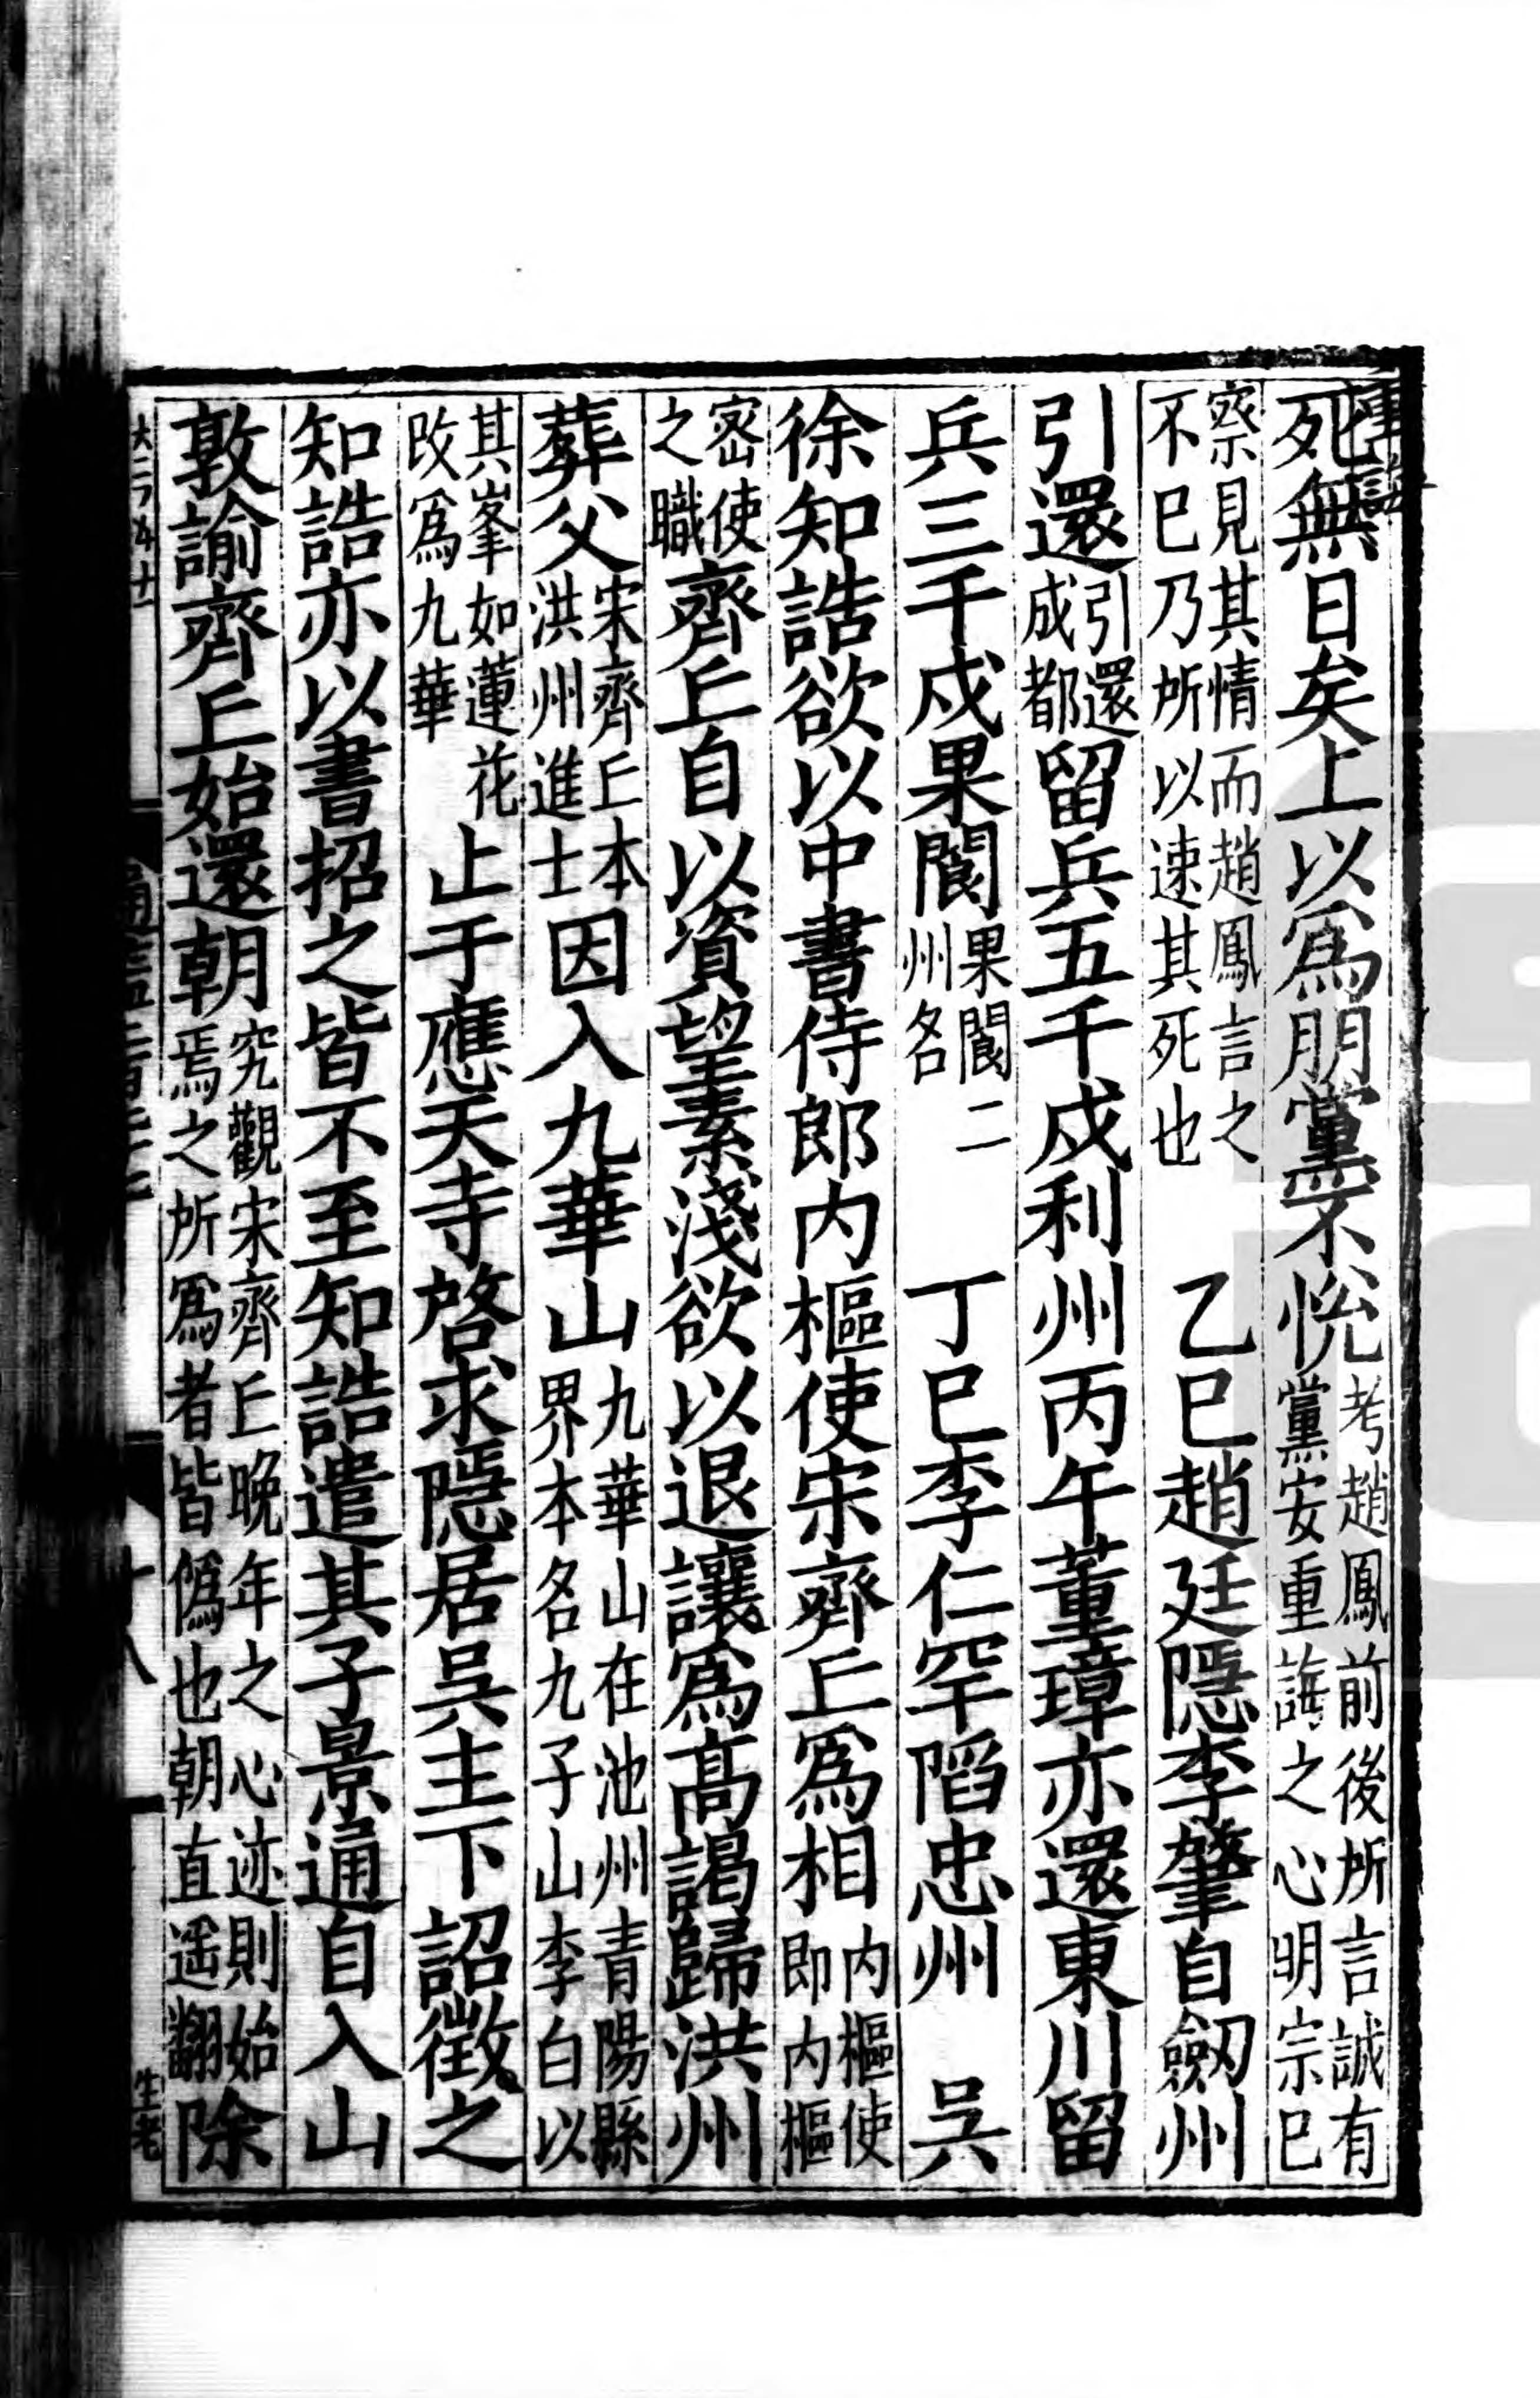 死無日矣上以爲朋黨不悦考趙鳳前後所言誠有黨安重誨之心明宗已
察見其情而趙鳳言之不已乃所以速其死也 乙巳趙廷隱李肇自劒州
引還引還成都留兵五千戍利州丙午董璋亦還東川留
兵三千戍果閬果閬二州名 丁巳李仁罕䧟忠州 吳
徐知誥欲以中書侍郎内樞使宋齊丘爲相内樞使即内樞
密使之職齊丘自以資望素淺欲以退讓爲髙謁歸洪州
葬父宋齊丘本洪州進士因入九華山九華山在池州青陽縣界本名九子山李白以
其峯如蓮花改爲九華止于應天寺啓求隱居吳主下詔徴之
知誥亦以書招之皆不至知誥遣其子景通自入山
敦諭齊丘始還朝究觀宋齊丘晚年之心迹則始焉之所爲者皆僞也朝直遥翻除